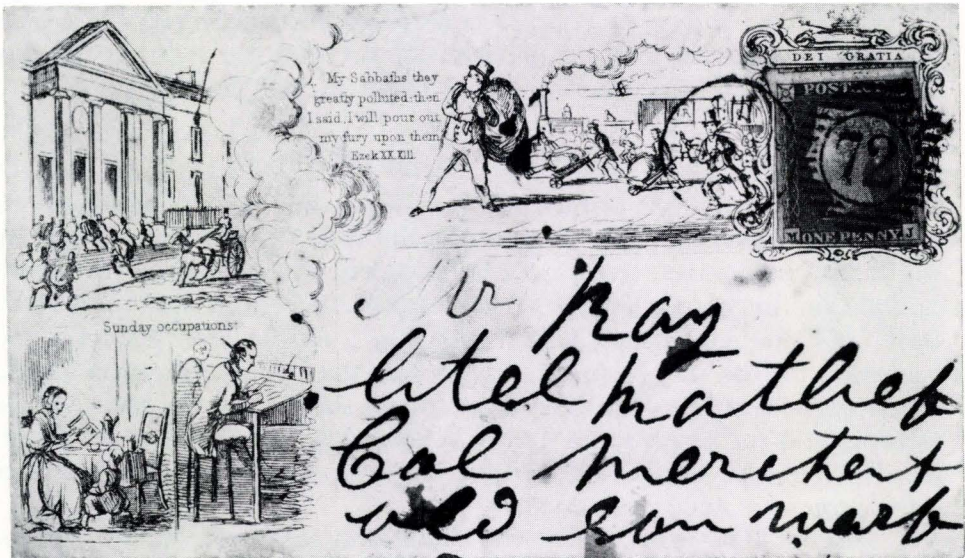 My Sabbaths they
greatly polluted: then
I said, I will pour out
my fury upon them
Ezek XX, XIII.
DEI GRATIA
POSTAGE
72
M ONE PENNY J
Sunday occupations
Mr Kay
litel
Col merchent
old